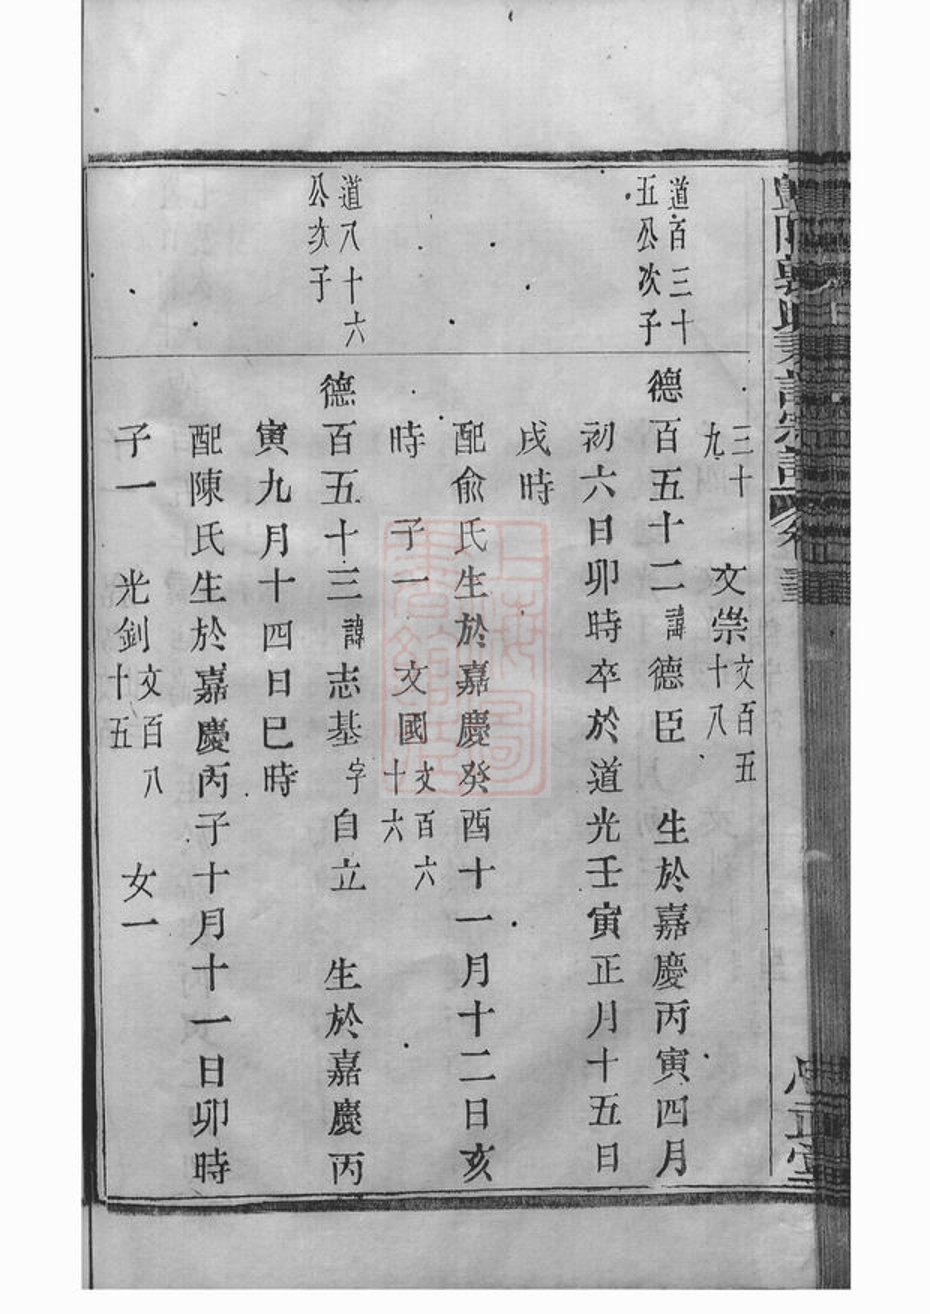 三十九 文崇文百五十八
道百三十五公次子
德百五十二諱德臣 生於嘉慶丙寅四月
初六日卯時卒於道光壬寅正月十五日
戌時
配俞氏生於嘉慶癸酉十一月十二日亥
時 子一 文國文百六十六
道八十六公次子
德百五十三諱志基字自立 生於嘉慶丙
寅九月十四日巳時
配陳氏生於嘉慶丙子十月十一日卯時
子一 光釗文百八十五 女一